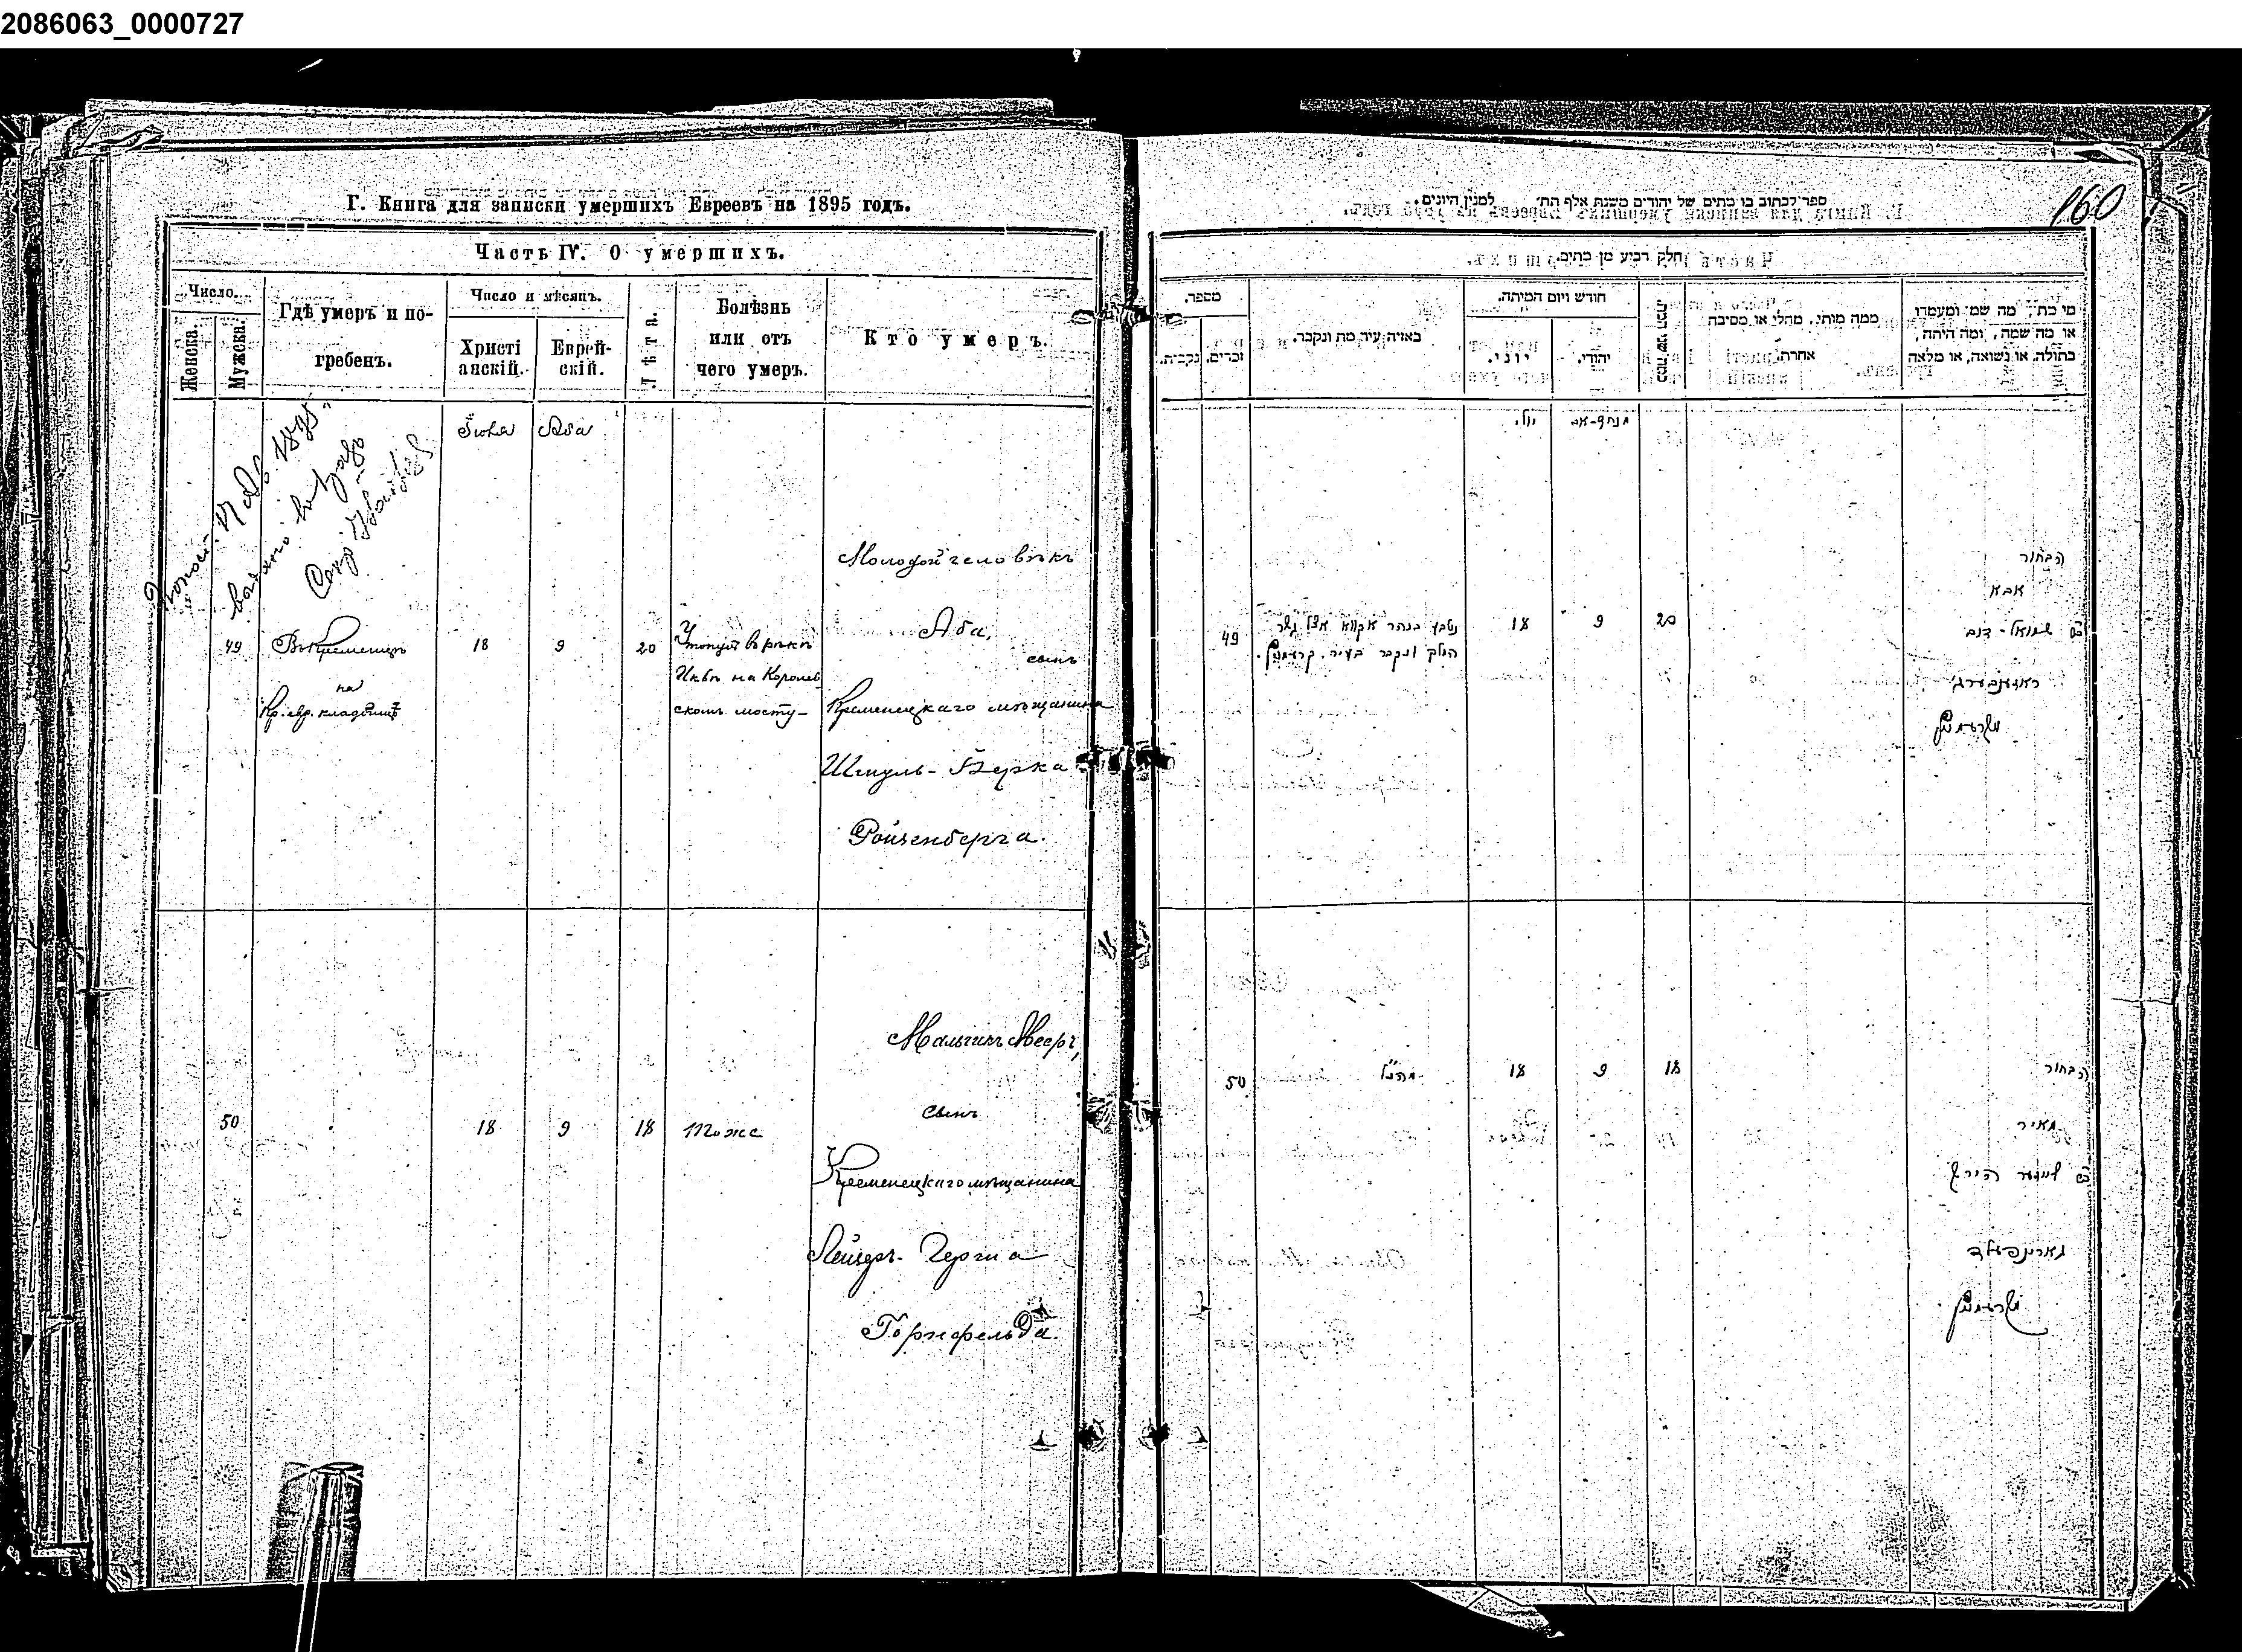 2086063_0000727
Г. Книга для записки умершихъ Евреевъ на 1895 годъ.
Часть IV. О умершихъ.
Число.
Женска.
Мужска.
Гдѣ умеръ и по-
гребенъ.
Число и мѣсяцъ.
Христі
анскій.
Еврей-
скій.
Лѣта.
Болѣзнь
или отъ
чего умеръ.
Кто умеръ.
Іюля
Аба
49
Въ Кременцѣ
на
Кр. евр. кладбищѣ
18
9
20
Утонулъ въ рѣкѣ
Иквѣ на Королев
скомъ мосту-
Молодой человѣкъ
Аба,
сынъ
Кременецкаго мѣщанина
Шмуль-Берка
Ройзенберга.
50
18
9
18
тоже
Мальчикъ Мееръ,
сынъ
Кременецкаго мѣщанина
Лейзеръ-Герша
Горнфельда.
160
ספר לכתוב בו מתים של יהודים משנת אלף הת׳ למנין היונים.
חלק רביעי מן מתים.
מספר.
נקבות.
זכרים.
באיזה עיר מת ונקבר.
חודש ויום המיתה.
יוני.
יהודי.
ממה מותו, מחלי או מסיבה
אחרת.
מי מת, מה שמו ומעמדו
או מה שמה, ומה היתה,
בתולה, או נשואה, או מלאה
יולי
מנחם-אב
49
נטבע בנהר איקווא אצל גשר
18
9
20
הבחור
אבא
שמואל-
ראזענבערג
50
כהנ״ל
18
9
18
הבחור
מאיר
הירש
גארנפעלד